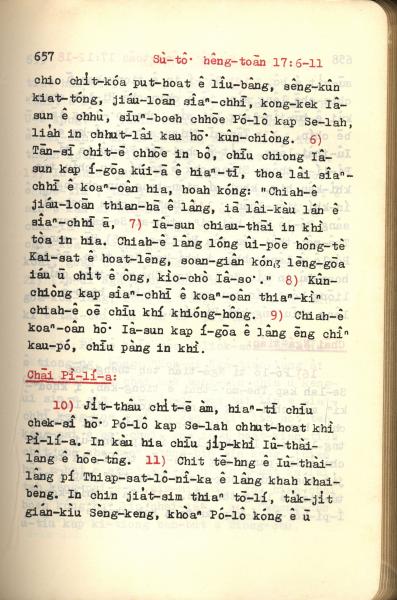 657 Sù-tô͘ hêng-toān 17:6-11
chio chi̍t-kóa put-hoat ê lîu-bâng, sêng-kûn
kiat-tóng, jiáu-loān siâⁿ-chhī, kong-kek Iâ-
sun ê chhù, siuⁿ-boeh chhōe Pó-lô kap Se-lah,
lia̍h in chhut-lâi kau hō͘ kûn-chiòng. 6)
Tān-sī chi̍t-ē chhōe in bô, chīu chiong Iâ-
sun kap í-gōa kúi-ā ê hiaⁿ-tī, thoa lâi siâⁿ-
chhī ê koaⁿ-oān hia, hoah kóng: "Chiah-ê
jiáu-loān thian-hā ê lâng, iā lâi-kàu lán ê
siâⁿ-chhī ā, 7) Iâ-sun chiau-thāi in khì
tòa in hia. Chiah-ê lâng lóng ûi-pōe hông-tè
Kai-sat ê hoat-lēng, soan-giân kóng lēng-gōa
iáu ū chi̍t ê ông, kìo-chò Iâ-so͘." 8) Kûn-
chiòng kap siâⁿ-chhī ê koaⁿ-oān thiaⁿ-kìⁿ
chiah-ê oē chīu khí khióng-hông. 9) Chiah-ê
koaⁿ-oān hō͘ Iâ-sun kap í-gōa ê lâng ēng chîⁿ
kau-pó, chīu pàng in khì.
Chāi Pí-lí-a:
10) Ji̍t-thâu chi̍t-ē àm, hiaⁿ-tī chīu
chek-sî hō͘ Pó-lô kap Se-lah chhut-hoat khì
Pí-lí-a. In kàu hia chīu ji̍p-khì Iû-thài-
lâng ê hōe-tn̂g. 11) Chit tē-hng ê Iû-thài-
lâng pí Thiap-sat-lô-nî-ka ê lâng khah khai-
bêng. In chin jia̍t-sim thiaⁿ tō-lí, ta̍k-ji̍t
gián-kìu Sèng-keng, khòaⁿ Pó-lô kóng ê ū